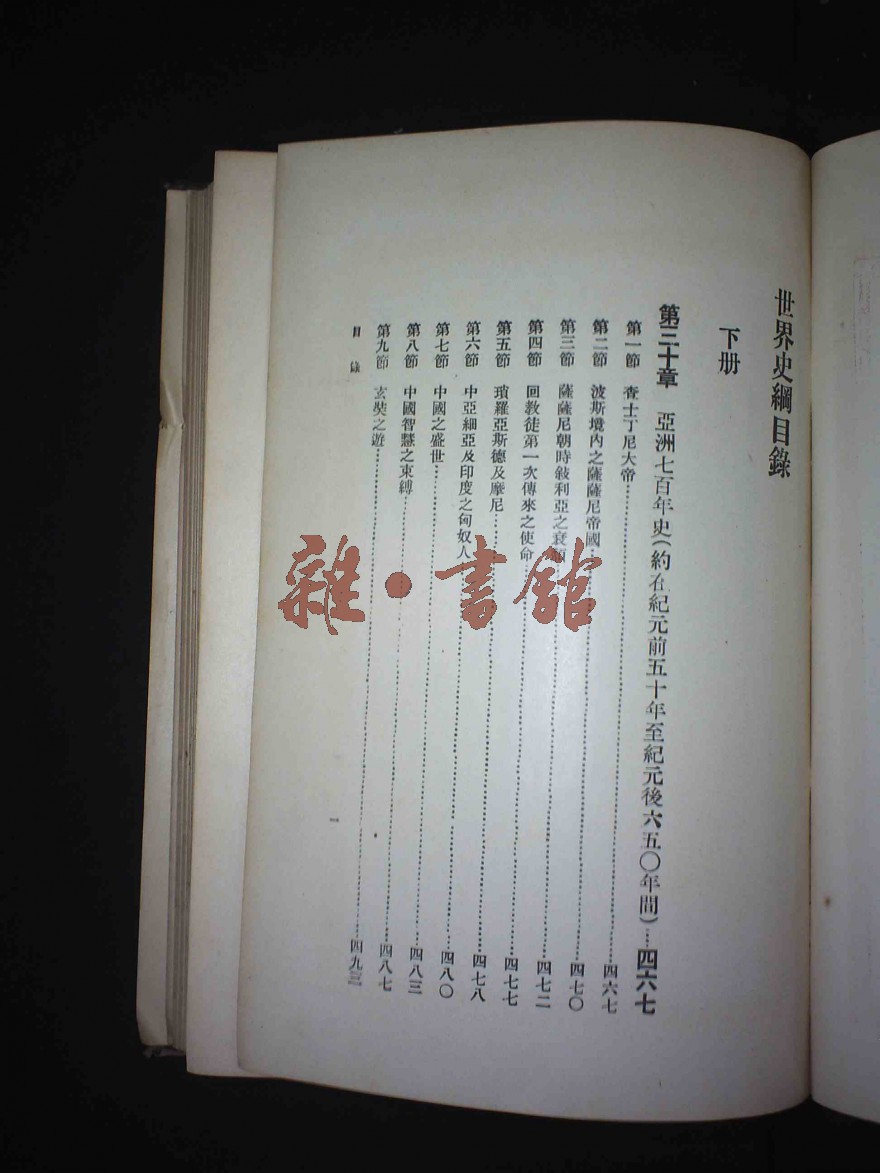 世界史綱目錄
下册
第三十章 亞洲七百年史(約在紀元前五十年至紀元後六五〇年間)……四六七
第一節 查士丁尼大帝……四六七
第二節 波斯境內之薩薩尼帝國……四七〇
第三節 薩薩尼朝時敍利亞之衰……四七二
第四節 回教徒第一次傳來之使命……四七七
第五節 瑣羅亞斯德及摩尼……四七八
第六節 中亞細亞及印度之匈奴人……四八〇
第七節 中國之盛世……四八三
第八節 中國智慧之束縛……四八七
第九節 玄奘之遊……四九三
目錄
一
雜·書館